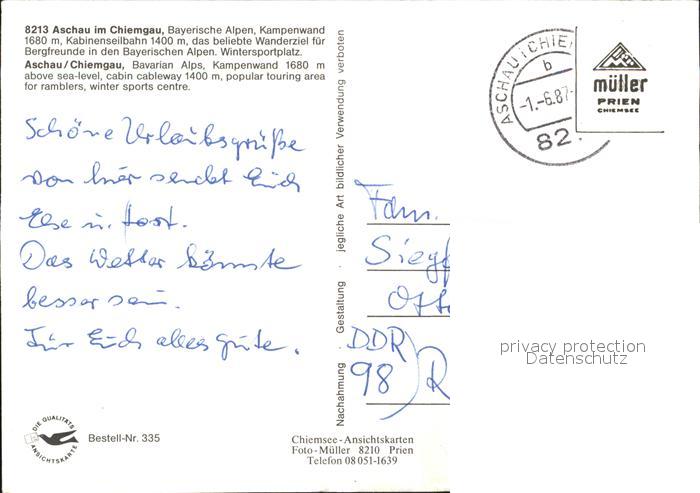 8213 Aschau im Chiemgau, Bayerische Alpen, Kampenwand
1680 m, Kabinenseilbahn 1400 m, das beliebte Wanderziel für
Bergfreunde in den Bayerischen Alpen. Wintersportplatz.
Aschau/Chiemgau, Bavarian Alps, Kampenwand 1680 m
above sea-level, cabin cableway 1400 m, popular touring area
for ramblers, winter sports centre.
Schöne Urlaubsgrüße
von hier sendet Euch
Else u. Horst.
Das Wetter könnte
besser sein.
Für Euch alles gute.
DIE QUALITÄTS
ANSICHTSKARTE
Bestell-Nr. 335
Nachahmung · Gestaltung · jegliche Art bildlicher Verwendung verboten
Chiemsee-Ansichtskarten
Foto-Müller 8210 Prien
Telefon 08051-1639
ASCHAU i CHIE
b
-1.-6.87-
82
müller
PRIEN
CHIEMSEE
Fam.
Siegf
Otto
DDR
98 R
privacy protection
Datenschutz